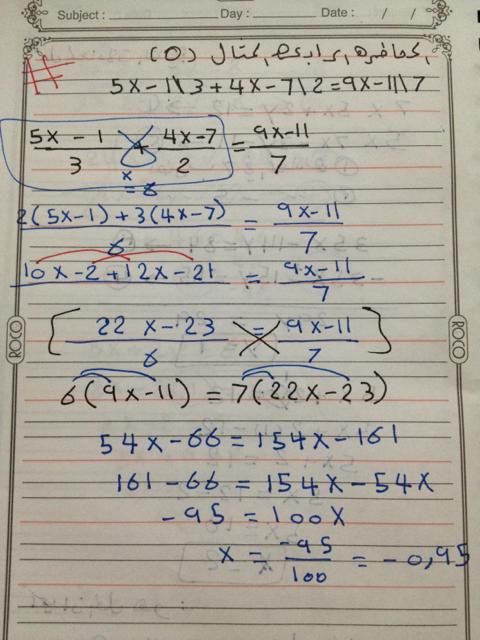 Subject : Day : Date : / /
المحاضره الرابعه المثال (٥)
5x-1\3+4x-7\2=9x-11\7
5x-1/3 + 4x-7/2 = 9x-11/7
x
= 6
2(5x-1)+3(4x-7)/6 = 9x-11/7
10x-2+12x-21 = 9x-11/7
[22x-23/6 = 9x-11/7]
6(9x-11) = 7(22x-23)
54x-66=154x-161
161-66=154x-54x
-95=100x
x = -95/100 = -0,95
ROCO
ROCO